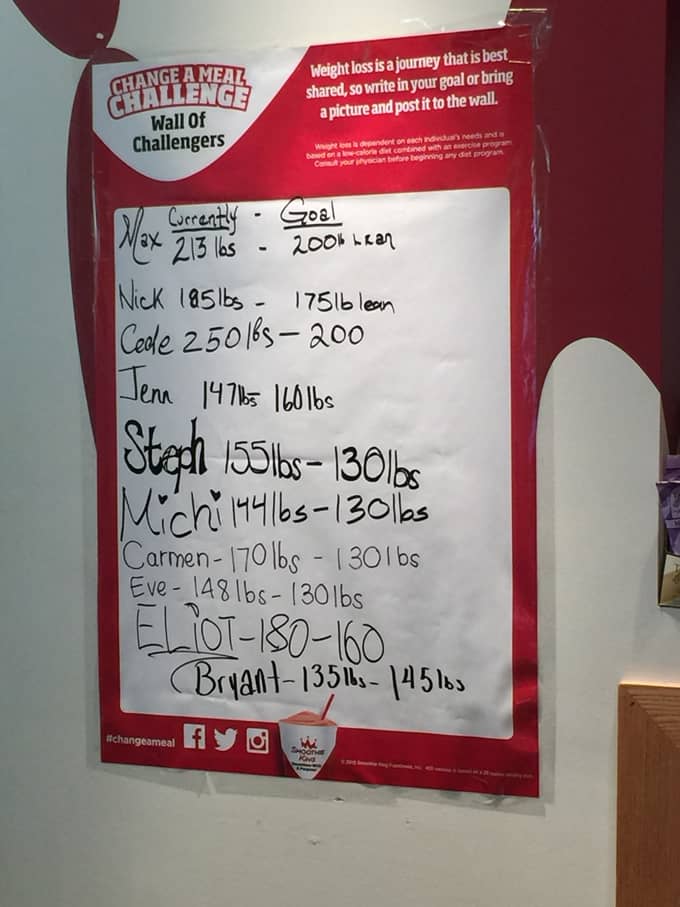 CHANGE A MEAL
CHALLENGE
Wall Of
Challengers
Weight loss is a journey that is best
shared, so write in your goal or bring
a picture and post it to the wall.
Weight loss is dependent on each individual's needs and is
based on a low-calorie diet combined with an exercise program.
Consult your physician before beginning any diet program.
Currently - Goal
Max 213 lbs - 200lb Lean
Nick 185lbs - 175lb lean
Cede 250lbs - 200
Jenn 147lbs 160lbs
Steph 155lbs - 130lbs
Michi 144lbs - 130lbs
Carmen - 170lbs - 130lbs
Eve - 148lbs - 130lbs
ELiOT - 180 - 160
Bryant - 135lbs - 145lbs
#changeameal
SMOOTHIE
KING
Smoothies With
A Purpose